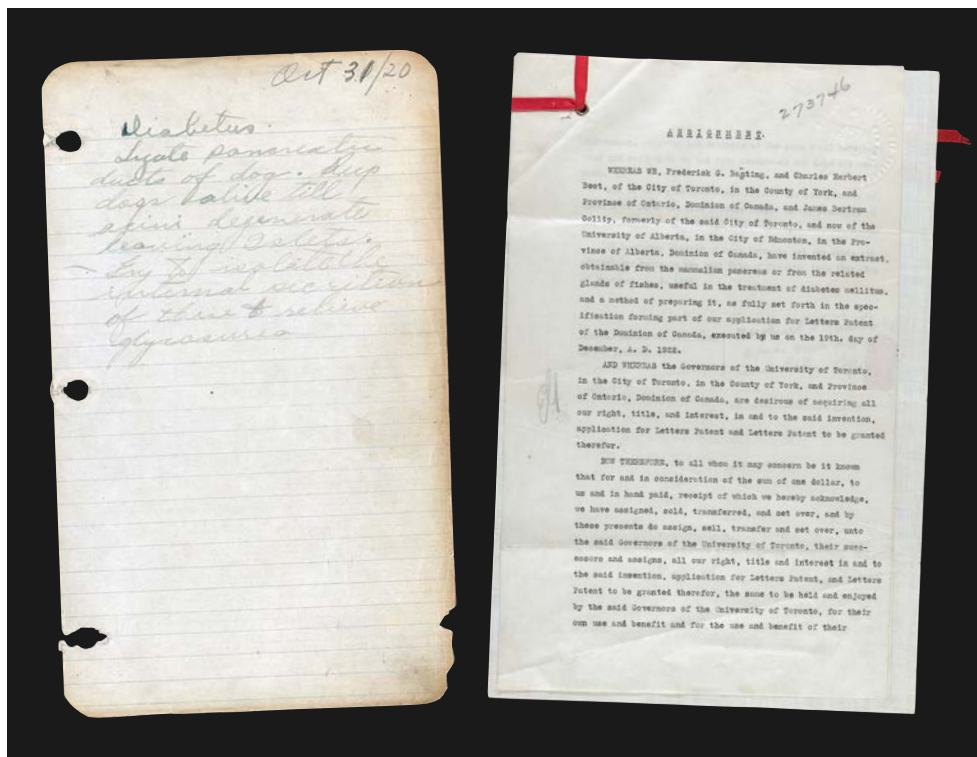 Oct 31/20
Diabetus.
Ligate pancreatic
ducts of dog. Keep
dogs alive till
acini degenerate
leaving Islets.
Try to isolate the
internal secretion
of these to relieve
glycosurea
273746
ASSIGNMENT.
WHEREAS WE, Frederick G. Banting, and Charles Herbert
Best, of the City of Toronto, in the County of York, and
Province of Ontario, Dominion of Canada, and James Bertram
Collip, formerly of the said City of Toronto, and now of the
University of Alberta, in the City of Edmonton, in the Pro-
vince of Alberta, Dominion of Canada, have invented an extract,
obtainable from the mammalian pancreas or from the related
glands of fishes, useful in the treatment of diabetes mellitus,
and a method of preparing it, as fully set forth in the spec-
ification forming part of our application for Letters Patent
of the Dominion of Canada, executed by us on the 19th. day of
December, A. D. 1922.
AND WHEREAS the Governors of the University of Toronto,
in the City of Toronto, in the County of York, and Province
of Ontario, Dominion of Canada, are desirous of acquiring all
our right, title, and interest, in and to the said invention,
application for Letters Patent and Letters Patent to be granted
therefor.
NOW THEREFORE, to all whom it may concern be it known
that for and in consideration of the sum of one dollar, to
us and in hand paid, receipt of which we hereby acknowledge,
we have assigned, sold, transferred, and set over, and by
these presents do assign, sell, transfer and set over, unto
the said Governors of the University of Toronto, their succ-
essors and assigns, all our right, title and interest in and to
the said invention, application for Letters Patent, and Letters
Patent to be granted therefor, the same to be held and enjoyed
by the said Governors of the University of Toronto, for their
own use and benefit and for the use and benefit of their